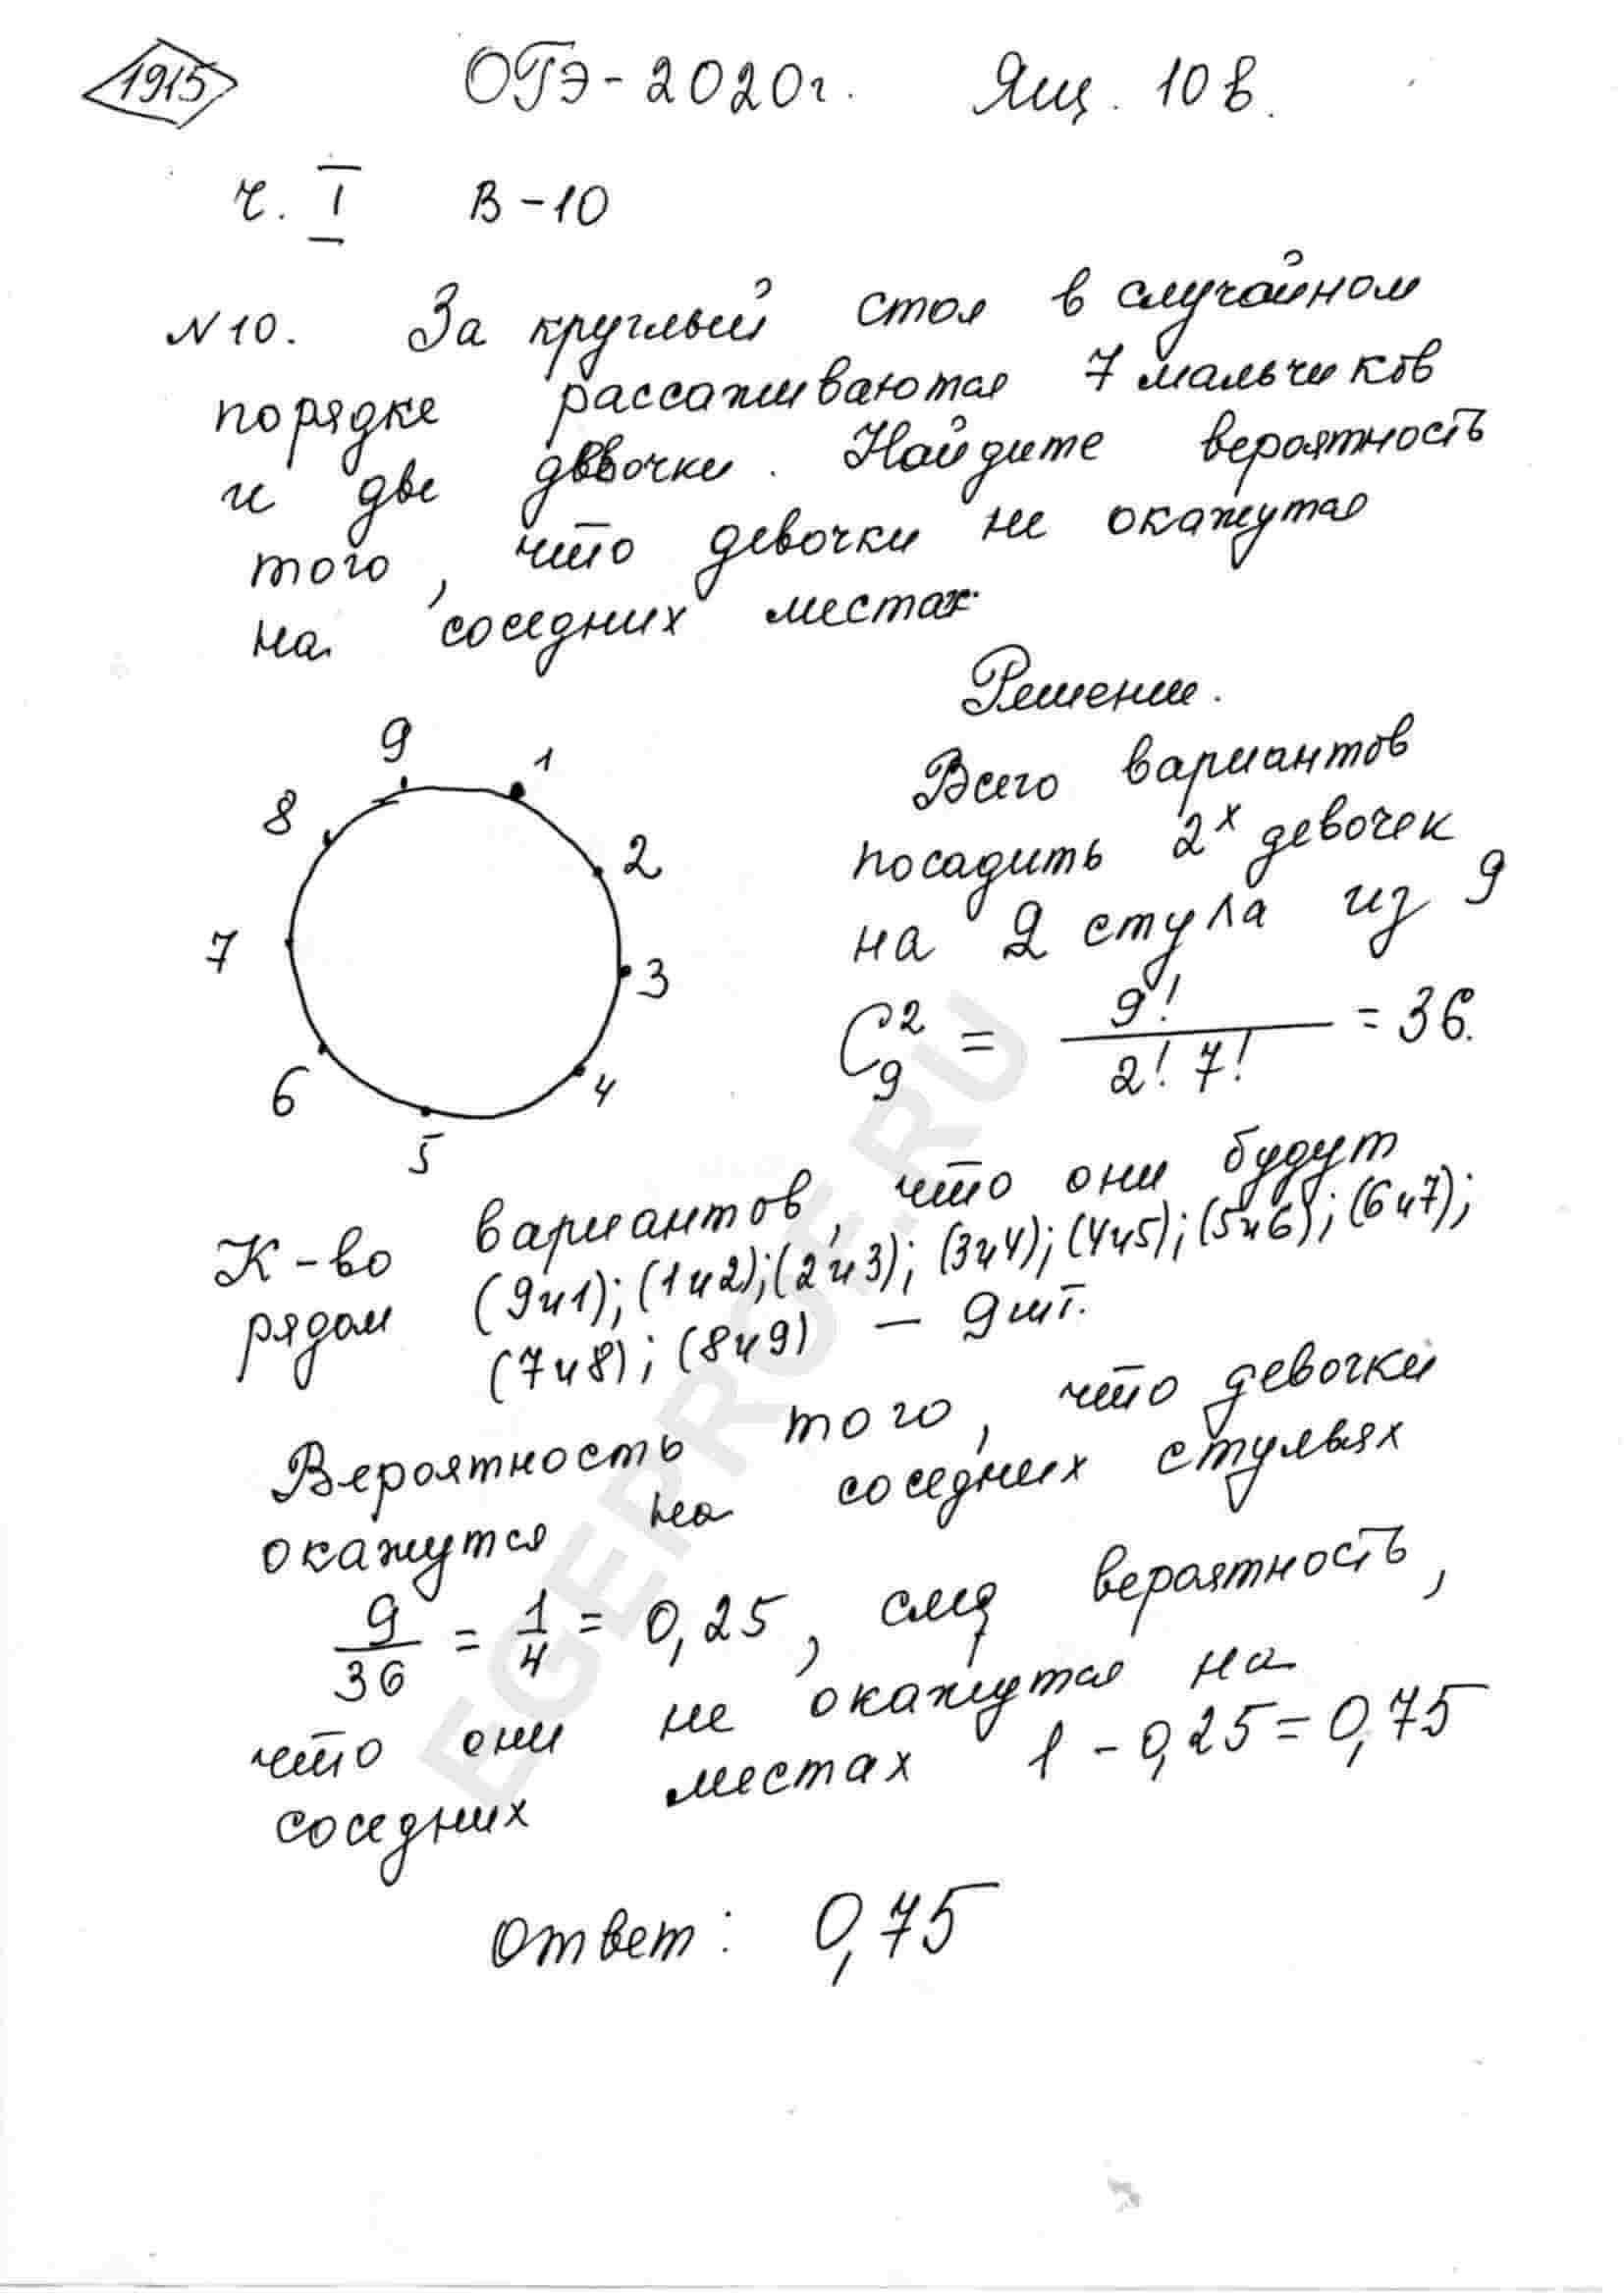 1915 ОГЭ-2020г. Ящ. 10в.
Ч. I В-10
N10. За круглый стол в случайном
порядке рассаживаются 7 мальчиков
и две девочки. Найдите вероятность
того, что девочки не окажутся
на соседних местах.
Решение.
9
1
8
2
7
3
6
4
5
Всего вариантов
посадить 2х девочек
на 2 стула из 9
C₉² = 9! / 2! 7! = 36.
К-во вариантов, что они будут
рядом (9и1); (1и2); (2и3); (3и4); (4и5); (5и6); (6и7);
(7и8); (8и9) — 9шт.
Вероятность того, что девочки
окажутся на соседних стульях
9/36 = 1/4 = 0,25, след вероятность,
что они не окажутся на
соседних местах 1 - 0,25 = 0,75
Ответ: 0,75
EGEPROF.RU